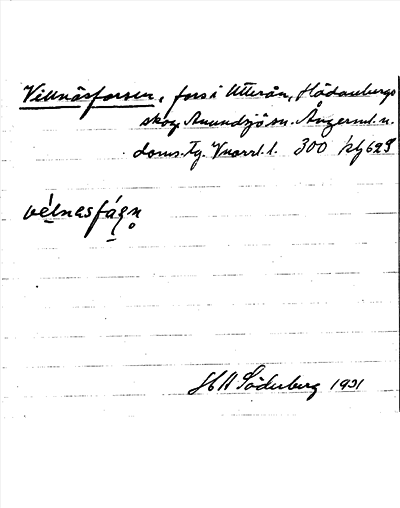 Villnäsforsen, fors i Utterån, Hädanbergs
skog Anundsjö sn. Ångerml. n.
doms. tg. Vnorrl. l. 300 kbl 62S
vélnasfáṣṇ
H A Söderberg 1931